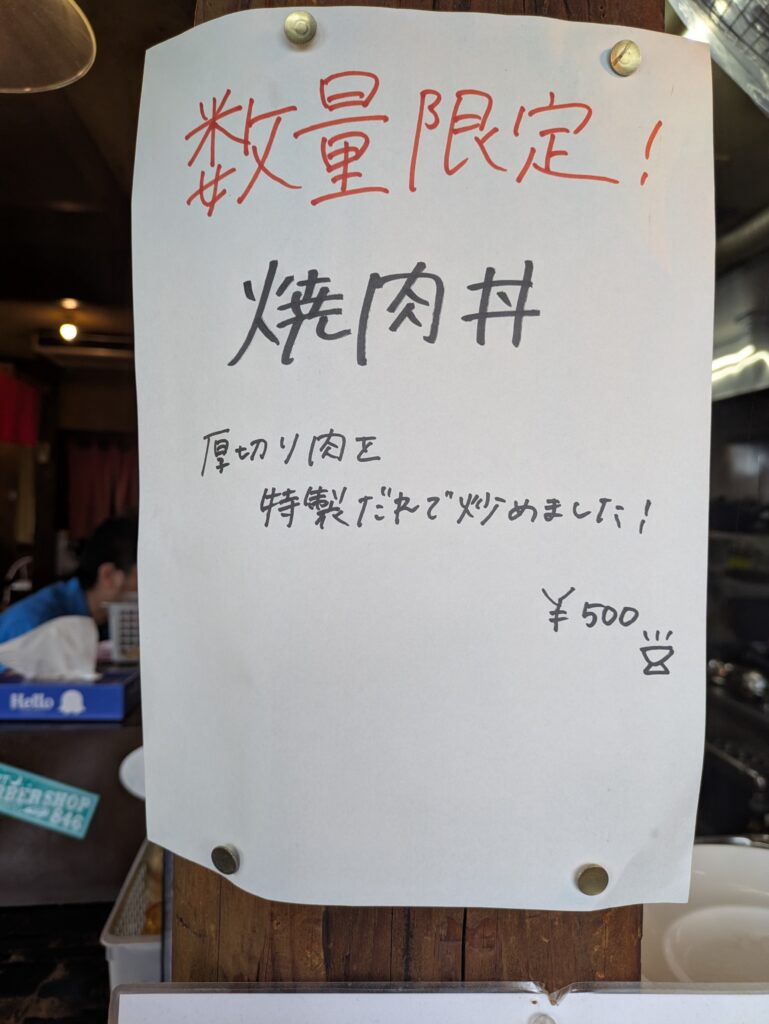 数量限定!
焼肉丼
厚切り肉を
特製だれで炒めました!
¥500
Hello
BERSHOP
846